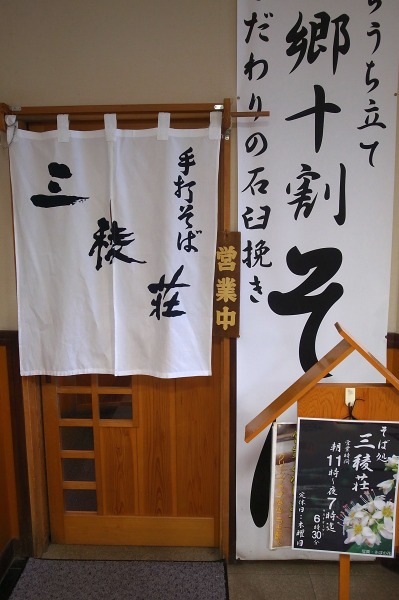 手打そば
三稜荘
営業中
うち立て
郷十割そ
だわりの石臼挽き
そば処
三稜荘
営業時間
朝11時～夜7時迄
6時30分
定休日：木曜日